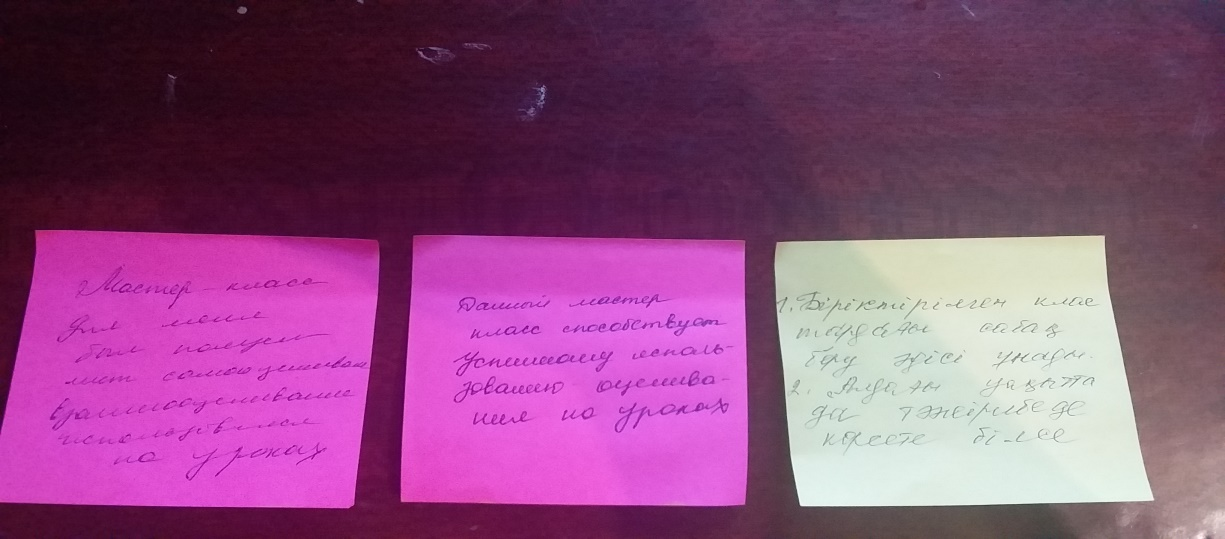 Мастер-класс
для меня
был полезен
лист самооценивания
взаимооценивание
использовался
на уроках
Данный мастер
класс способствует
успешному исполь-
зованию оценива-
ния на уроках
1. Біріктірілген клас
тардағы сабақ
беру әдісі ұнады.
2. Алдағы уақытта
да тәжірибеде
көрсете білсе